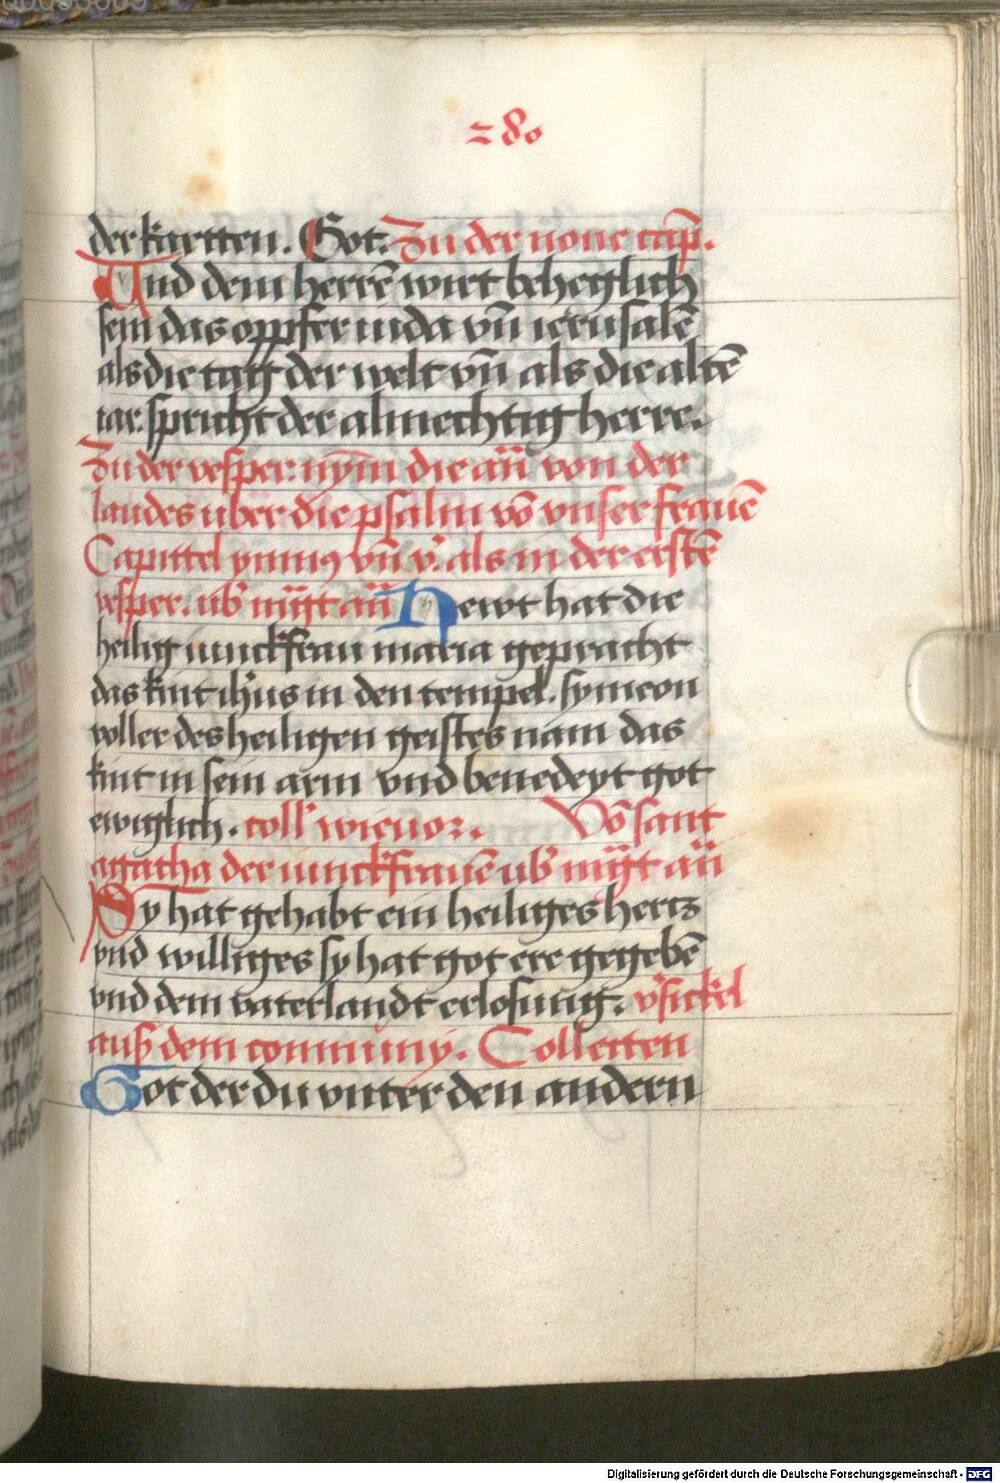 280
der kertten. Got. Zu der none cap̄.
Vnd dem herrē wirt beheglich
sein das opffer iuda vn̄ ierusalē
als die tag der welt vn̄ als die altē
iar. spricht der almechtig herre.
Zu der vesper. nym die an̄ von der
laudes uber die psalm vō vnser frauē
Capittel ymnꝰ vn̄ v̓. als in der erstē
vesper. ub̓ m̄gt an̄ Hewt hat die
heilig iunckfrau maria gepracht
das kint ih̓us in den tempel. symeon
voller des heiligen geistes nam das
kint in sein arm vnd benedeyt got
ewiglich. coll̓ wie vor. Vō sant
agatha der iunckfrauē ub̓ m̄gt an̄
Sy hat gehabt ein heiliges hertz
vnd williges sy hat got ere gegebē
vnd dem vaterlandt erlosung. v̓sickel
auß dem communy. Colletten
Got der du vnter den andern
Digitalisierung gefördert durch die Deutsche Forschungsgemeinschaft - DFG